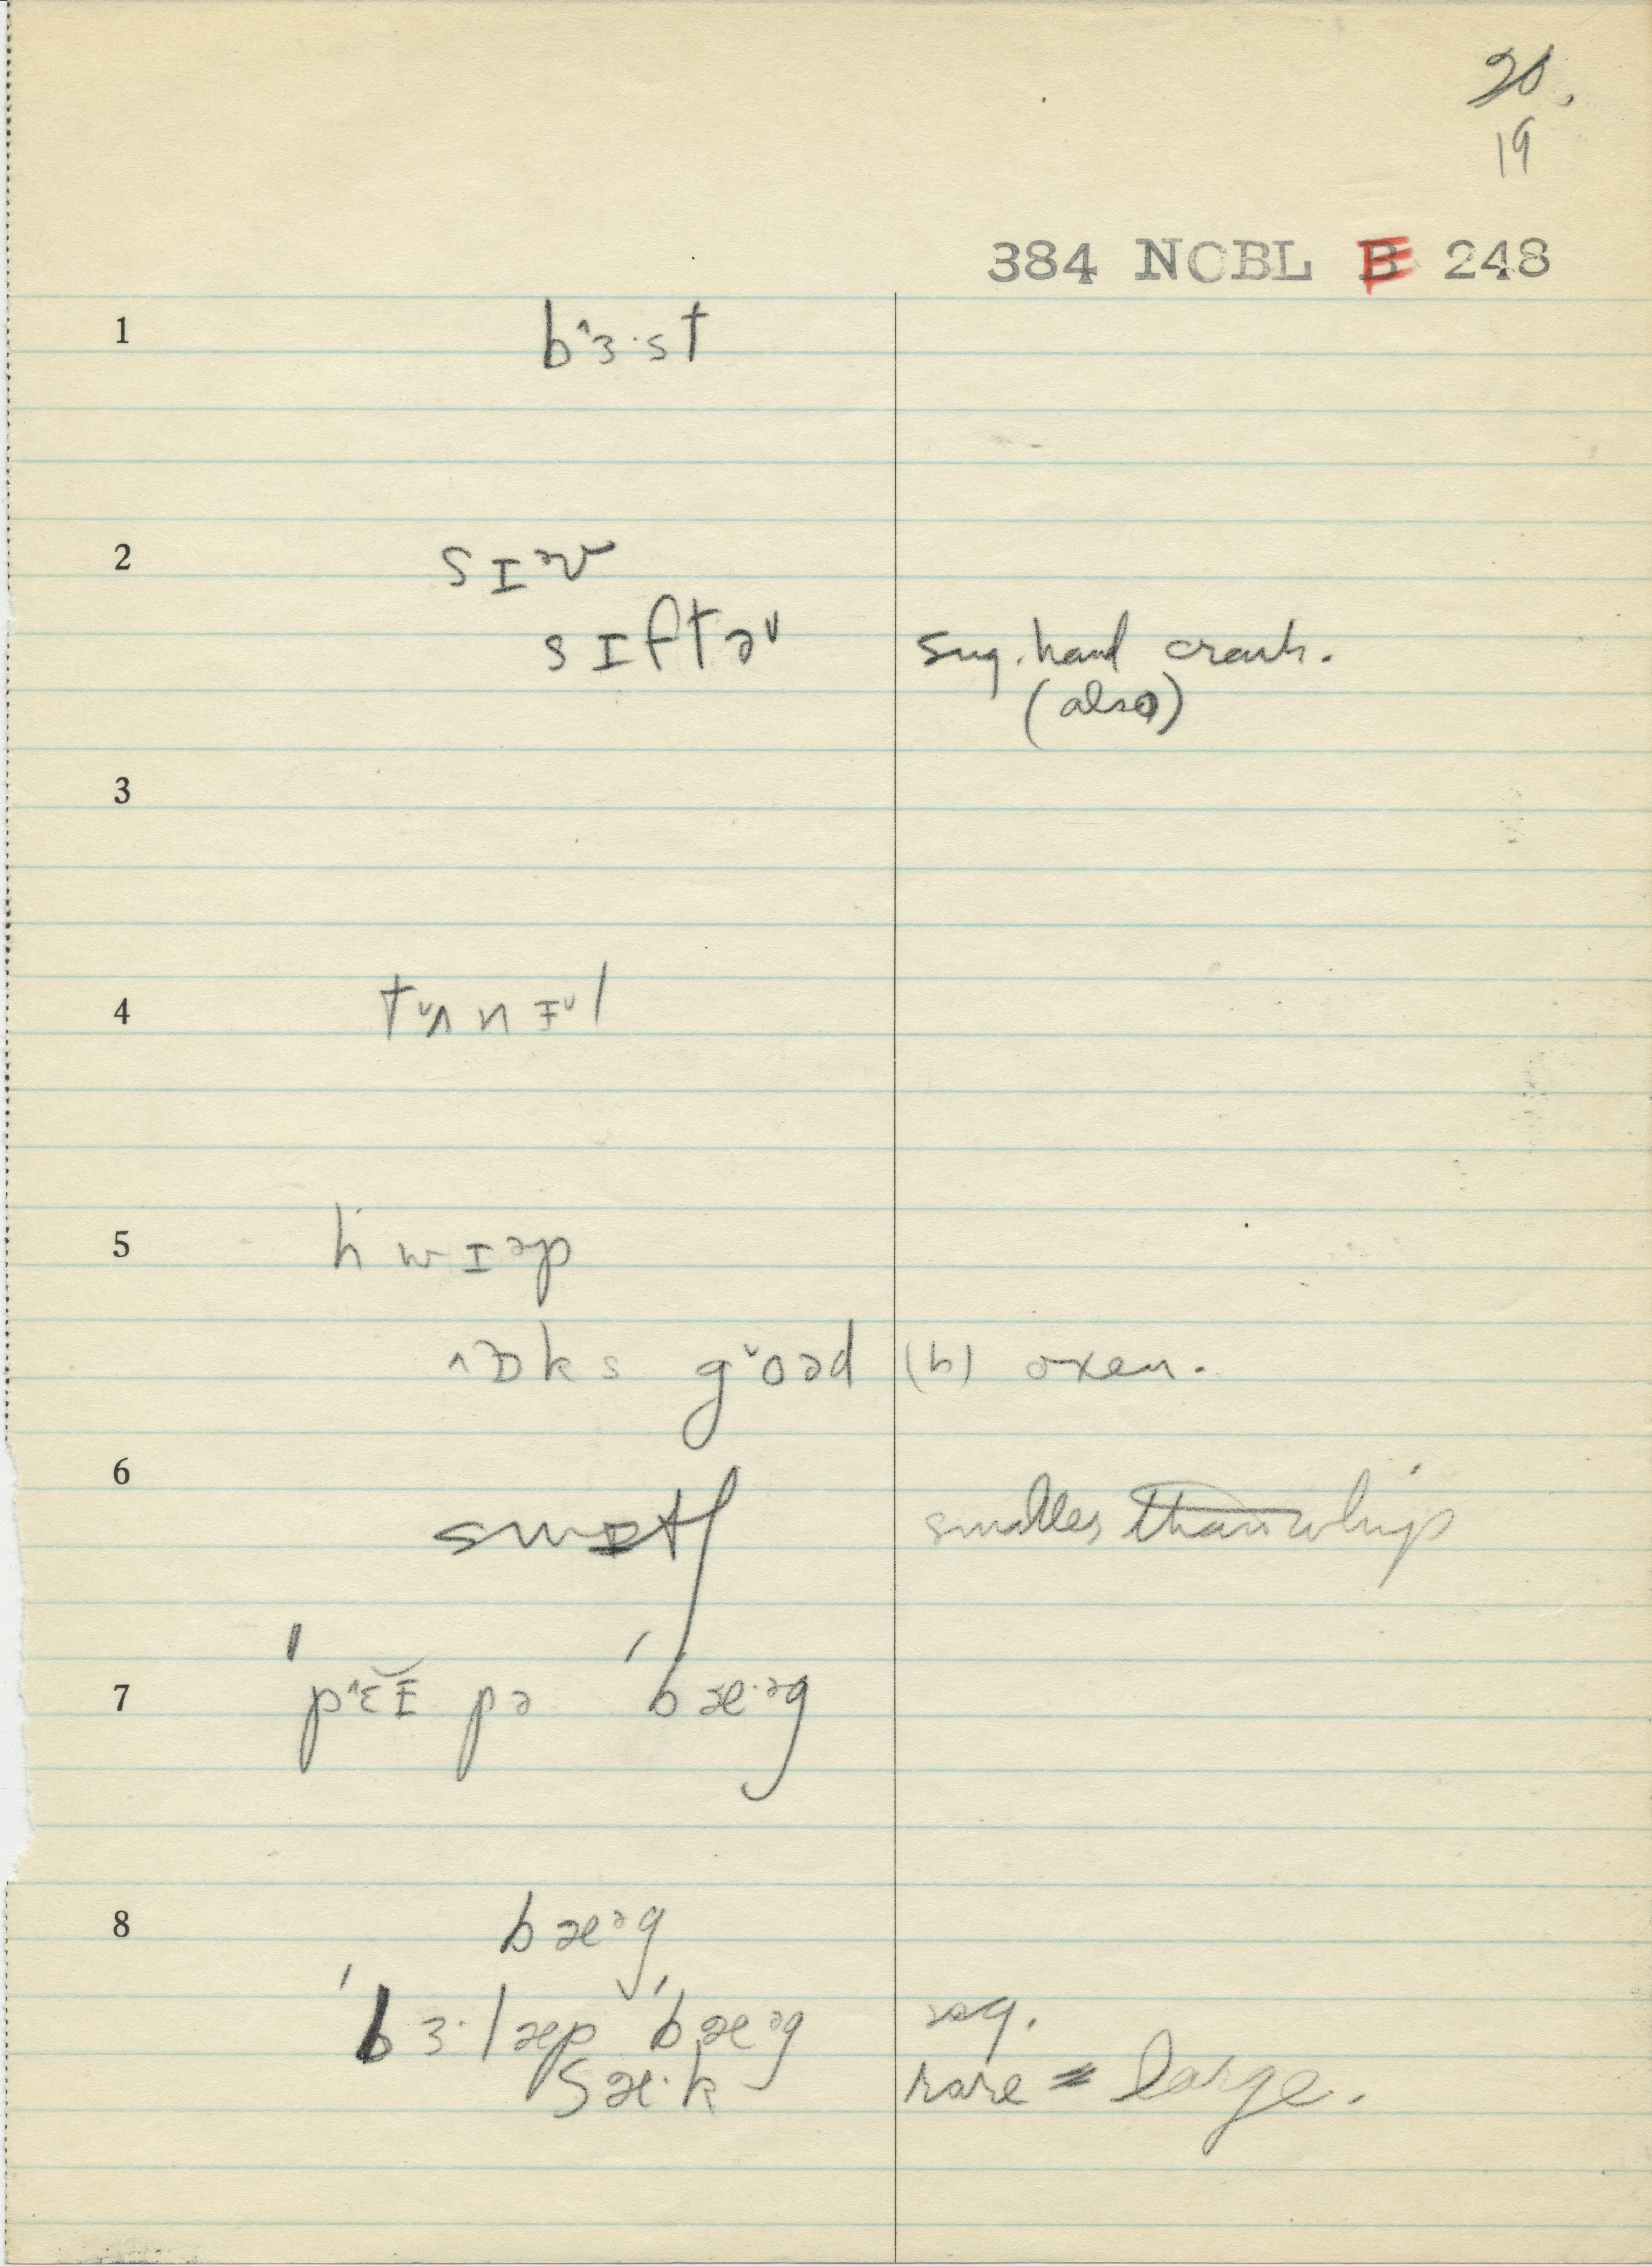 20.
19
384 NCBL B 248
1 b˄ɜ·st
2 sɪᵊv
sɪftə˅ sug. hand crank.
(also)
3
4 t˅ʌnɪ̵˅l
5 hwɪᵊp
˄ɒks g˅oəd (b) oxen.
6 swɪtʃ smaller than whip
7 ˈp˄ɛɪ̵̆pə ˈbæ·ᵊg
8 bæᵊg
ˈbɜ·læp ˈbæᵊg sug.
sæ·k rare = large.